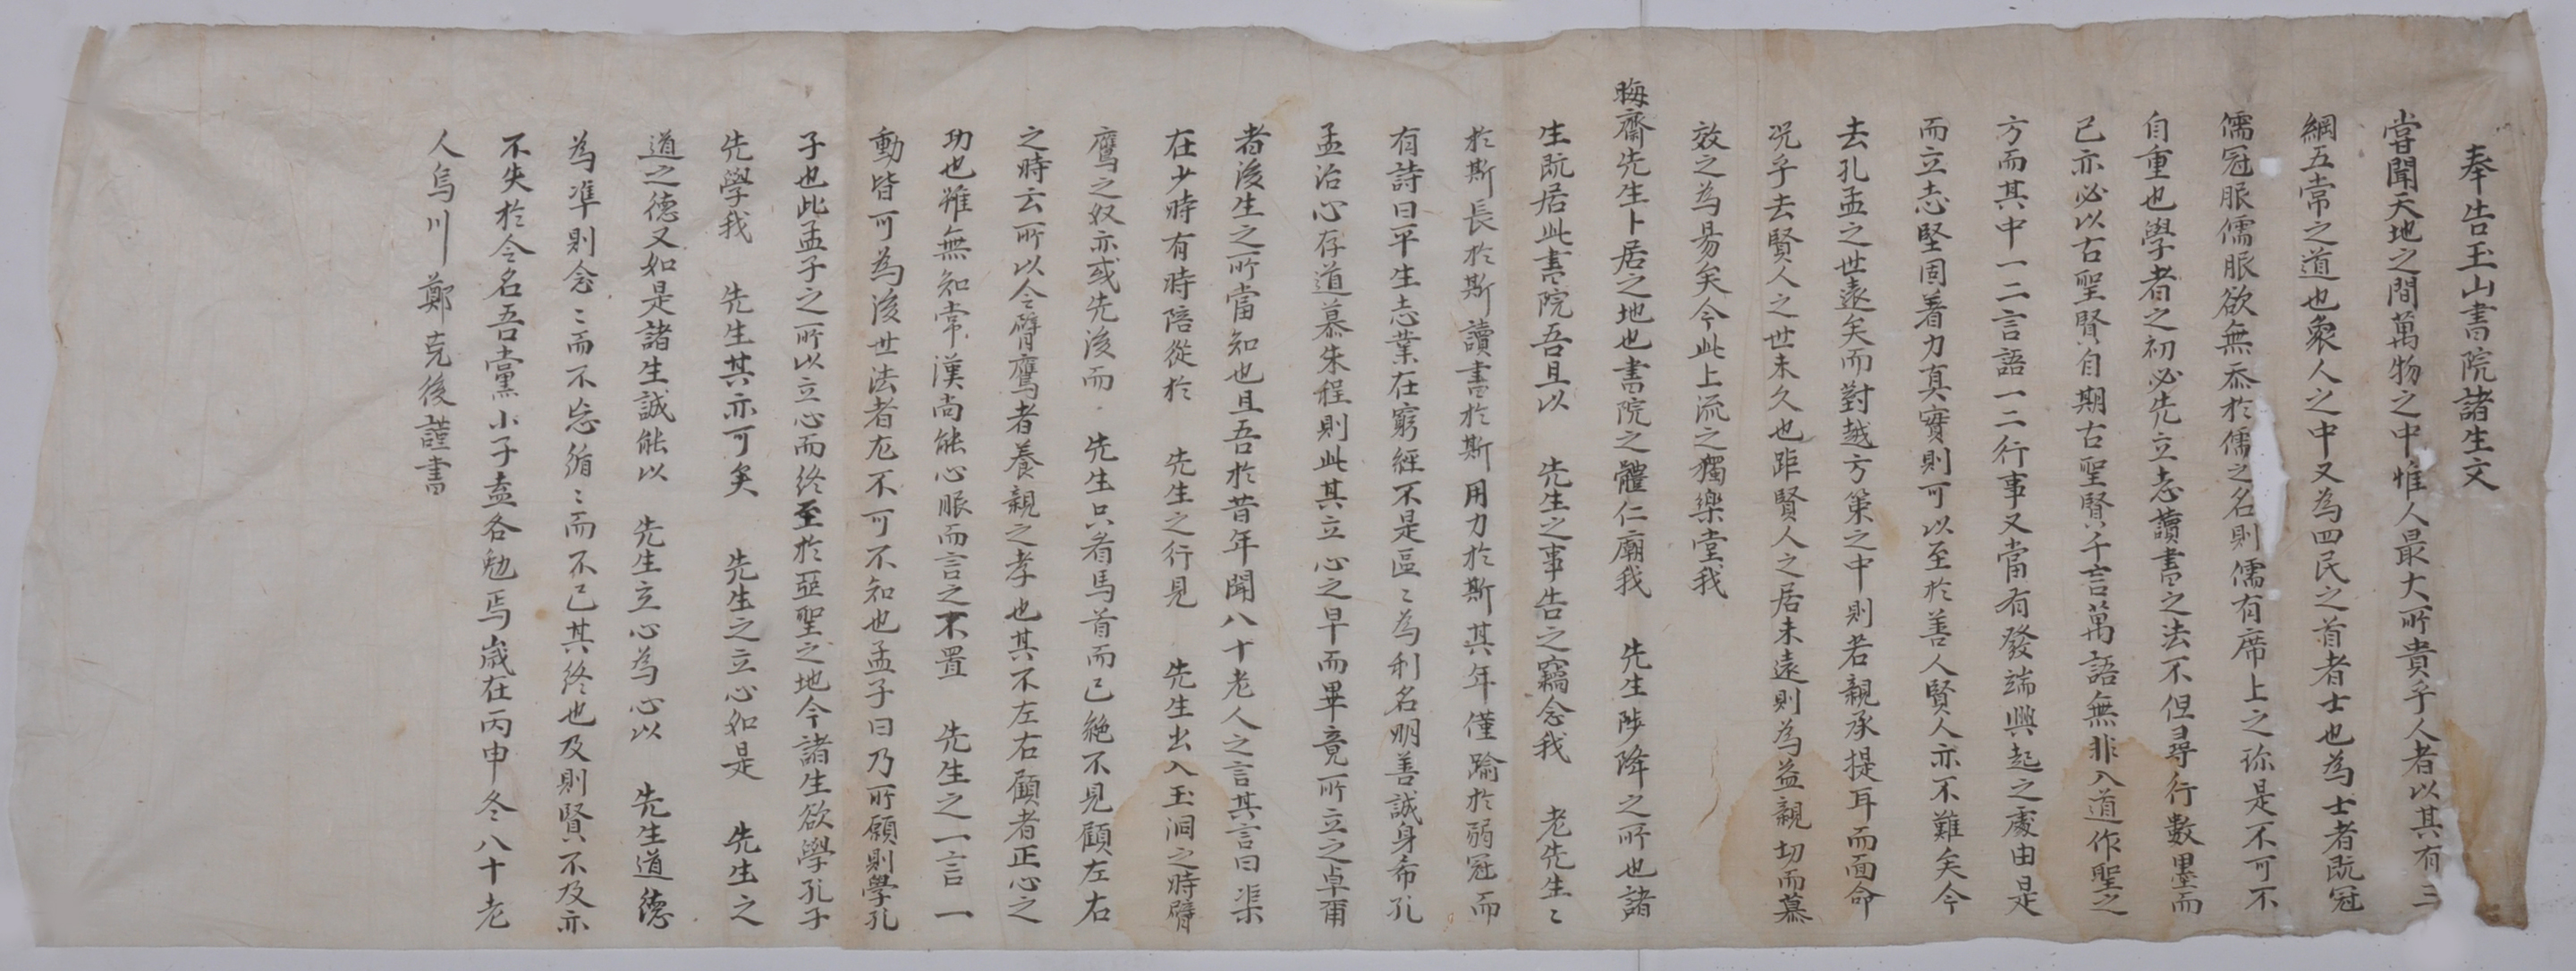 奉告玉山書院諸生文
嘗聞天地之間萬物之中惟人最大所貴乎人者以其有三
綱五常之道也衆人之中又為四民之首者士也為士者既冠
儒冠服儒服欲無忝於儒之名則儒有席上之珎是不可不
自重也學者之初必先立志讀書之法不但尋行數墨而
已亦必以古聖賢自期古聖賢千言萬語無非入道作聖之
方而其中一二言語一二行事又當有發端興起之處由是
而立志堅固着力真實則可以至於善人賢人亦不難矣今
去孔孟之世遠矣而對越方策之中則若親承提耳而面命
况乎去賢人之世未久也距賢人之居未遠則為益親切而慕
效之為易矣今此上流之獨樂堂我
晦齋先生卜居之地也書院之體仁廟我 先生陟降之所也諸
生既居此書院吾且以 先生之事告之竊念我 老先生〻
於斯長於斯讀書於斯用力於斯其年僅踰於弱冠而
有詩曰平生志業在窮經不是區〻為利名明善誠身希孔
孟治心存道慕朱程則此其立心之早而畢竟所立之卓爾
者後生之所當知也且吾於昔年聞八十老人之言其言曰渠
在少時有時陪從於 先生之行見 先生出入玉洞之時臂
鷹之奴亦或先後而 先生只看馬首而已絶不見顧左右
之時云所以令臂鷹者養親之孝也其不左右顧者正心之
功也雖無知常漢尚能心服而言之不置 先生之一言一
動皆可為後世法者尤不可不知也孟子曰乃所願則學孔
子也此孟子之所以立心而終至於亞聖之地今諸生欲學孔子
先學我 先生其亦可矣 先生之立心如是 先生之
道之德又如是諸生誠能以 先生立心為心以 先生道德
為準則念〻而不忘循〻而不已其終也及則賢不及亦
不失於令名吾黨小子盍各勉焉歲在丙申冬八十老
人烏川鄭克後謹書